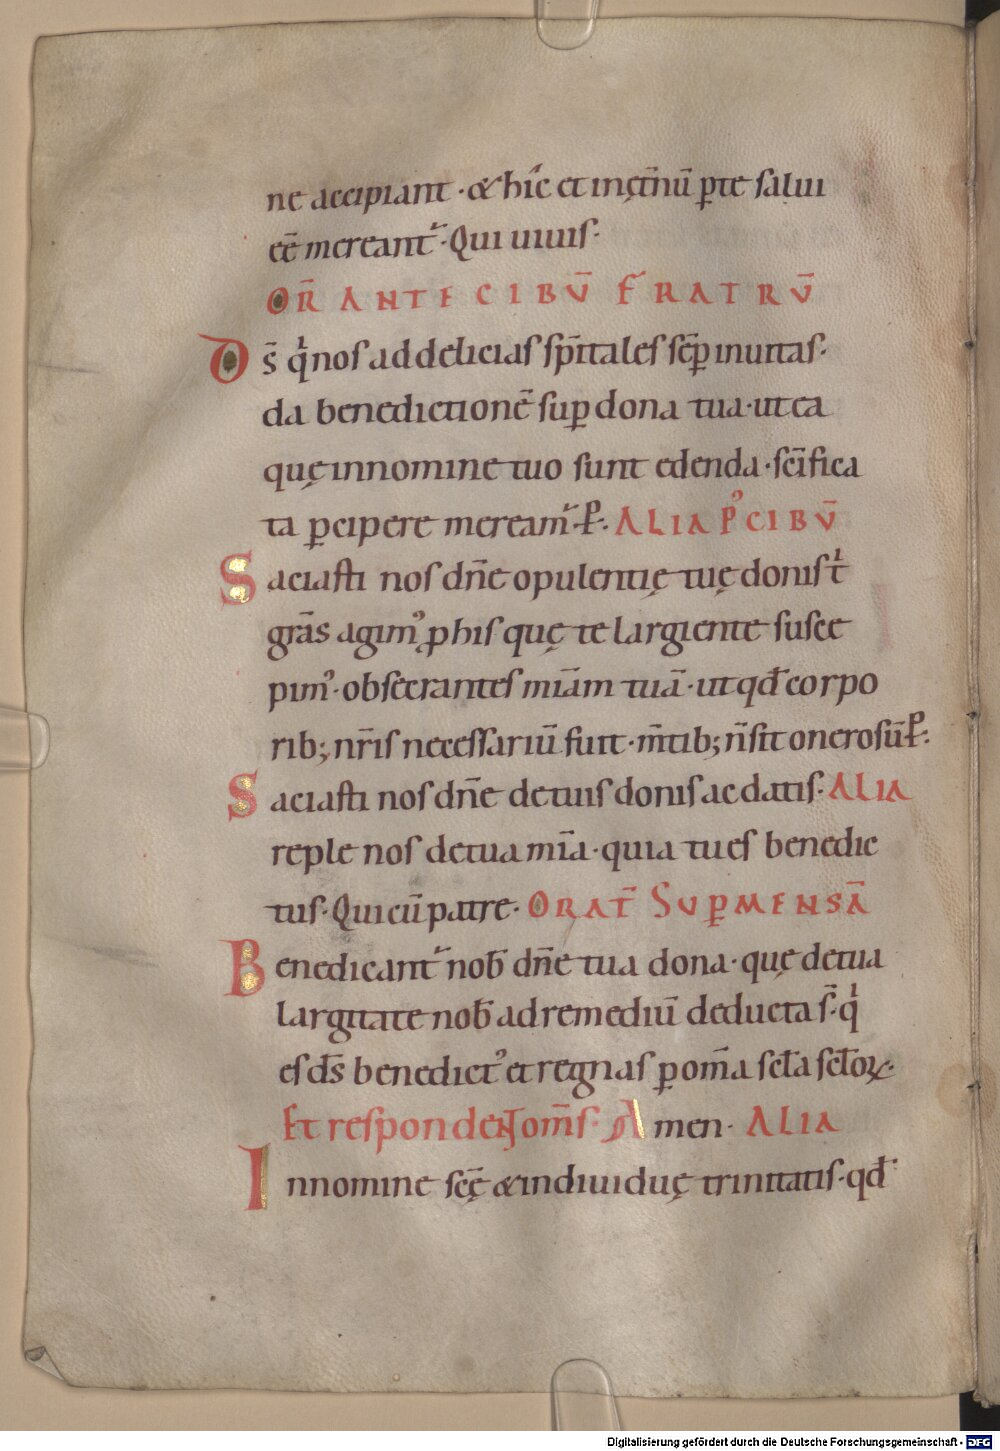 ne accipiant · & hic̄ et inęt̄nū ꝑte salui
eē̄ mereant᷑ · Qui uiuis ·
OR̄ ANTE CIBV̄ FRATRV̄
Ds̄ qͥ nos ad delicias sp̄itales sēꝑ inuitas ·
da benedictionē suꝑ dona tua · ut ea
quę innomine tuo sunt edenda · sc̄ifica
ta ꝑcipere meream᷑ · P̄ · ALIA P᷒ CIBV̄
Saciasti nos dn̄e opulentię tuę donis tͥ
grās agim᷒ ꝓ his quę te largiente susce
pim᷒ · obsecrantes miām tuā · ut qd̄ corpo
rib; nr̄is necessariū fuit · m̄tib; n̄ sit onerosū P̄ ·
Saciasti nos dn̄e de tuis donis ac datis · ALIA
reple nos de tua mīa · quia tu es benedic
tus · Qui cū patre · ORAT̄ SVꝑ MENSĀ
Benedicant᷑ nob̄ dn̄e tua dona · quę de tua
largitate nob̄ ad remediū deducta s̄ · qͥ
es ds̄ benedict᷒ et regnas ꝑ om̄a scl̄a scl̄oꝝ ·
Et respondent om̄s · Amen · ALIA
Innomine scę̄ & indiuiduę trinitatis · qd̄
Digitalisierung gefördert durch die Deutsche Forschungsgemeinschaft - DFG